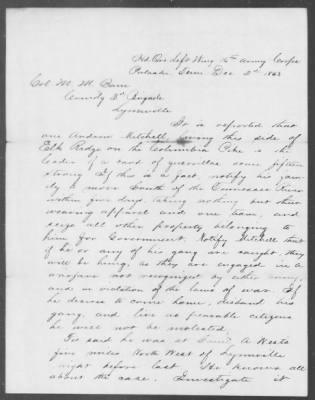 Hd Qrs Left Wing 16th Army Corps
Pulaski Tenn Dec 2d 1863
Col M. M. Bane
Comdg 3d Brigade
Lynnville
It is reported that
one Andrew Mitchell, living this side of
Elk Ridge on the Columbia Pike is the
leader of a band of guerrillas some fifteen
strong If this is a fact, notify his fam-
ily to move South of the Tennessee River
within five days, taking nothing but their
wearing apparel and one team, and
seize all other property belonging to
him for Government. Notify Mitchell that
if he or any of his gang are caught, they
will be hung, as they are engaged in a
warfare not recognized by either army,
and in violation of the laws of war. If
he desires to come home, disband his
gang, and live as peasable citizens
he will not be molested.
It is said he was at A Wests
five miles North West of Lynnville
night before last He knows all
about the case. Investigate it